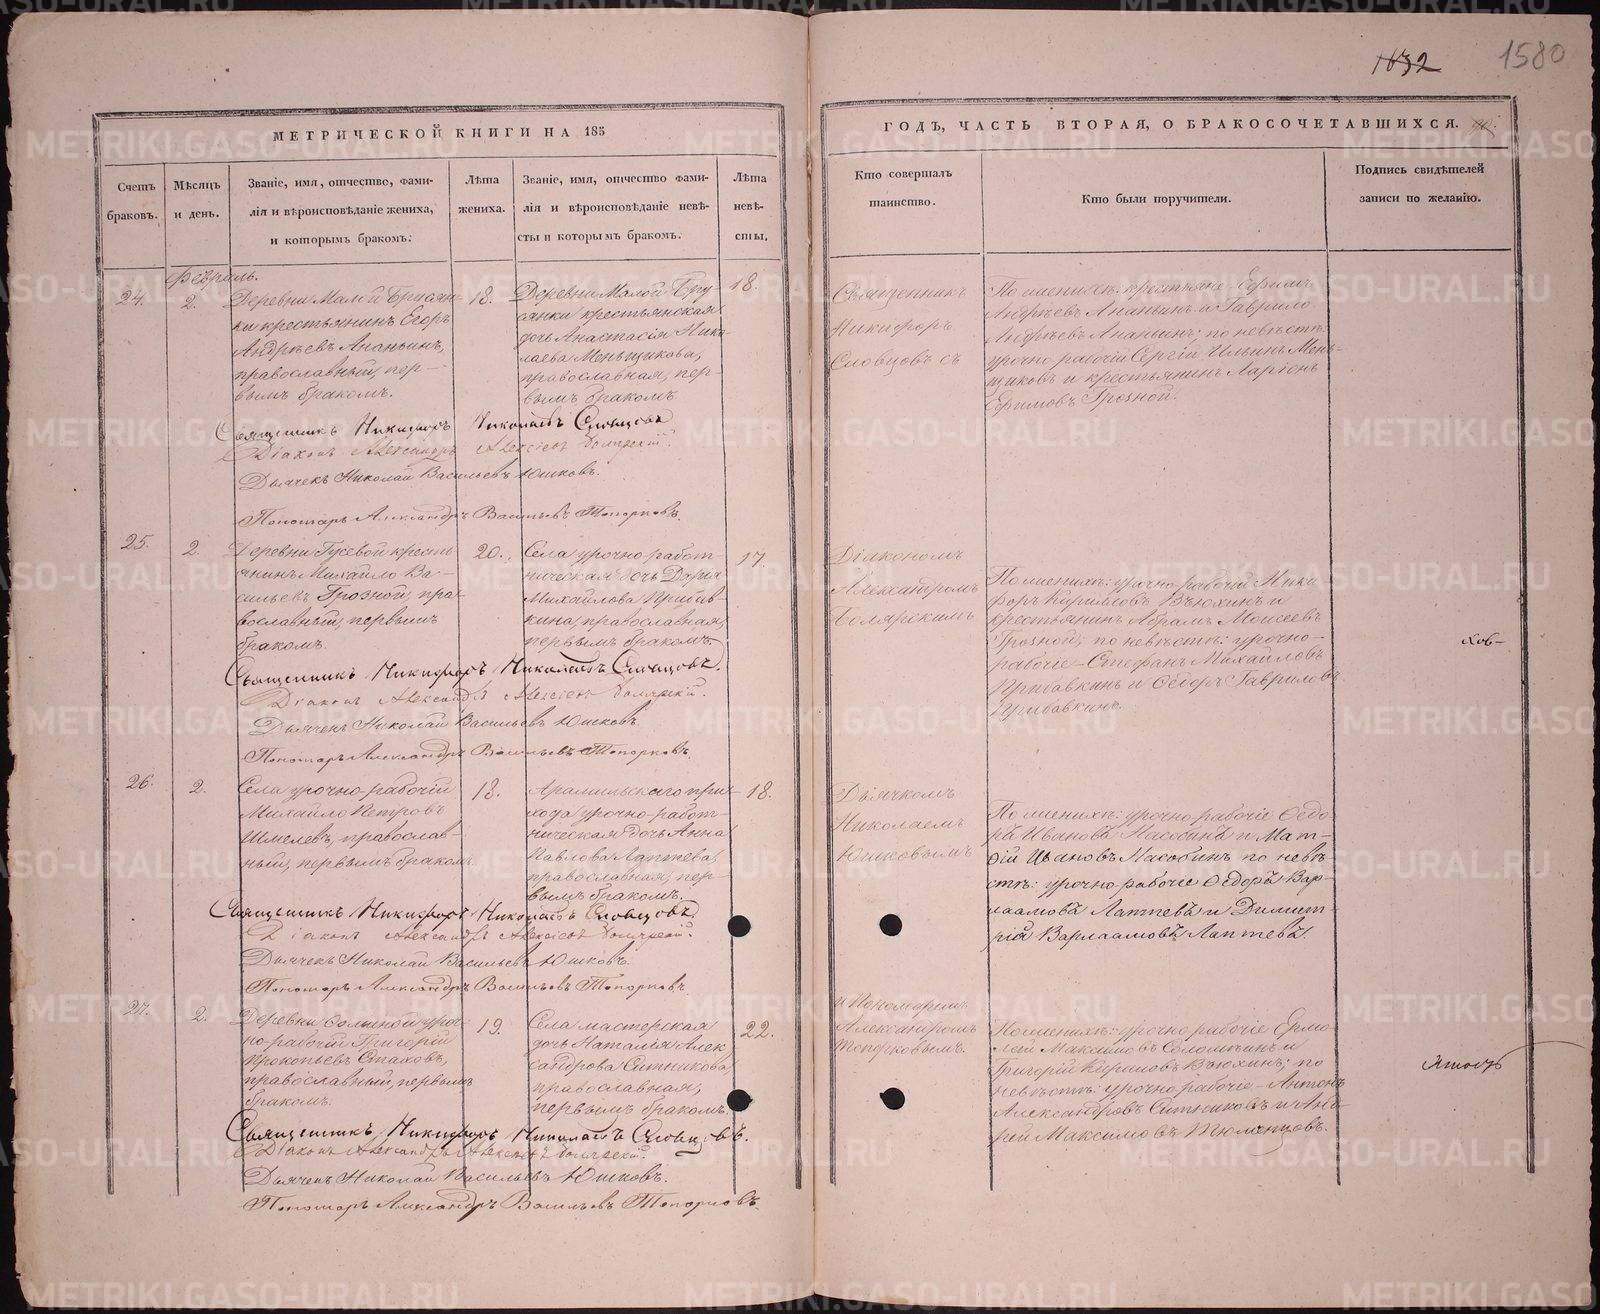 1632
1580
МЕТРИЧЕСКОЙ КНИГИ НА 185
ГОДЪ, ЧАСТЬ ВТОРАЯ, О БРАКОСОЧЕТАВШИХСЯ.
Счетъ
браковъ.
Мѣсяцъ
и день.
Званіе, имя, отчество, фами-
лія и вѣроисповѣданіе жениха,
и которымъ бракомъ.
Лѣта
жениха.
Званіе, имя, отчество фами-
лія и вѣроисповѣданіе невѣ-
сты и которымъ бракомъ.
Лѣта
невѣ-
сты.
Кто совершалъ
таинство.
Кто были поручители.
Подпись свидѣтелей
записи по желанію.
Февраль.
24.
2.
Деревни Малой Брусян-
ки крестьянинъ Егоръ
Андрѣевъ Ананьинъ,
православный, пер-
вымъ бракомъ.
18.
Деревни Малой Бру-
сянки крестьянская
дочь Анастасія Нико-
лаева Меньщикова,
православная, пер-
вымъ бракомъ
18.
Священникъ
Никифоръ
Словцовъ съ
По женихѣ: крестьяне Ефимъ
Андрѣевъ Ананьинъ и Гаврило
Андрѣевъ Ананьинъ; по невѣстѣ:
урочно-рабочій Сергій Ильинъ Мень-
щиковъ и крестьянинъ Ларіонъ
Ефимовъ Грозной.
Священникъ Никифоръ Николаевъ Словцовъ
Діаконъ Александръ Алексіевъ Болярскій.
Дьячекъ Николай Васильевъ Юшковъ.
Пономарь Александръ Васильевъ Топорковъ.
25.
2.
Деревни Гусевой кресть-
янинъ Михайло Ва-
сильевъ Грозной, пра-
вославный, первымъ
бракомъ.
20.
Села урочно-работ-
ническая дочь Дарія
Михайлова Прибав-
кина, православная,
первымъ бракомъ.
17.
Діакономъ
Александромъ
Болярскимъ
По женихѣ: урочно-рабочій Ники-
форъ Кириловъ Вьюхинъ и
крестьянинъ Абрамъ Моисеевъ
Грозной; по невѣстѣ: урочно-
рабочіе Стефанъ Михайловъ
Прибавкинъ и Ѳедоръ Гавриловъ
Прибавкинъ.
Священникъ Никифоръ Николаевъ Словцовъ.
Діаконъ Александръ Алексіевъ Болярскій.
Дьячекъ Николай Васильевъ Юшковъ.
Пономарь Александръ Васильевъ Топорковъ.
26.
2.
Села урочно-рабочій
Михайло Петровъ
Шмелевъ, православ-
ный, первымъ бракомъ.
18.
Арамильскаго при-
хода урочно-работ-
ническая дочь Анна
Павлова Лаптева,
православная, пер-
вымъ бракомъ.
18.
Дьячкомъ
Николаемъ
Юшковымъ
По женихѣ: урочно-рабочіе Ѳедо-
ръ Ивановъ Насобинъ и Мат-
ѳій Ивановъ Насобинъ по невѣ-
стѣ: урочно-рабочіе Ѳедоръ Вар-
лаамовъ Лаптевъ и Димит-
рій Варлаамовъ Лаптевъ.
Священникъ Никифоръ Николаевъ Словцовъ.
Діаконъ Александръ Алексіевъ Болярскій.
Дьячекъ Николай Васильевъ Юшковъ.
Пономарь Александръ Васильевъ Топорковъ
27.
2.
Деревни Соминой уроч-
но-рабочій Григорій
Прокопьевъ Стаховъ,
православный, первымъ
бракомъ.
19.
Села мастерская
дочь Наталія Алек-
сандрова Ситникова
православная,
первымъ бракомъ.
22.
и Пономаремъ
Александромъ
Топорковымъ.
По женихѣ: урочно-рабочіе Ермо-
лай Максимовъ Соломеинъ и
Григорій Кириловъ Вьюхинъ; по
невѣстѣ: урочно-рабочіе Антонъ
Александровъ Ситниковъ и Анд-
рей Максимовъ Тюменцовъ.
Священникъ Никифоръ Николаевъ Словцовъ.
Діаконъ Александръ Алексіевъ Болярскій.
Дьячекъ Николай Васильевъ Юшковъ.
Пономарь Александръ Васильевъ Топорковъ.
METRIKI.GASO-URAL.RU